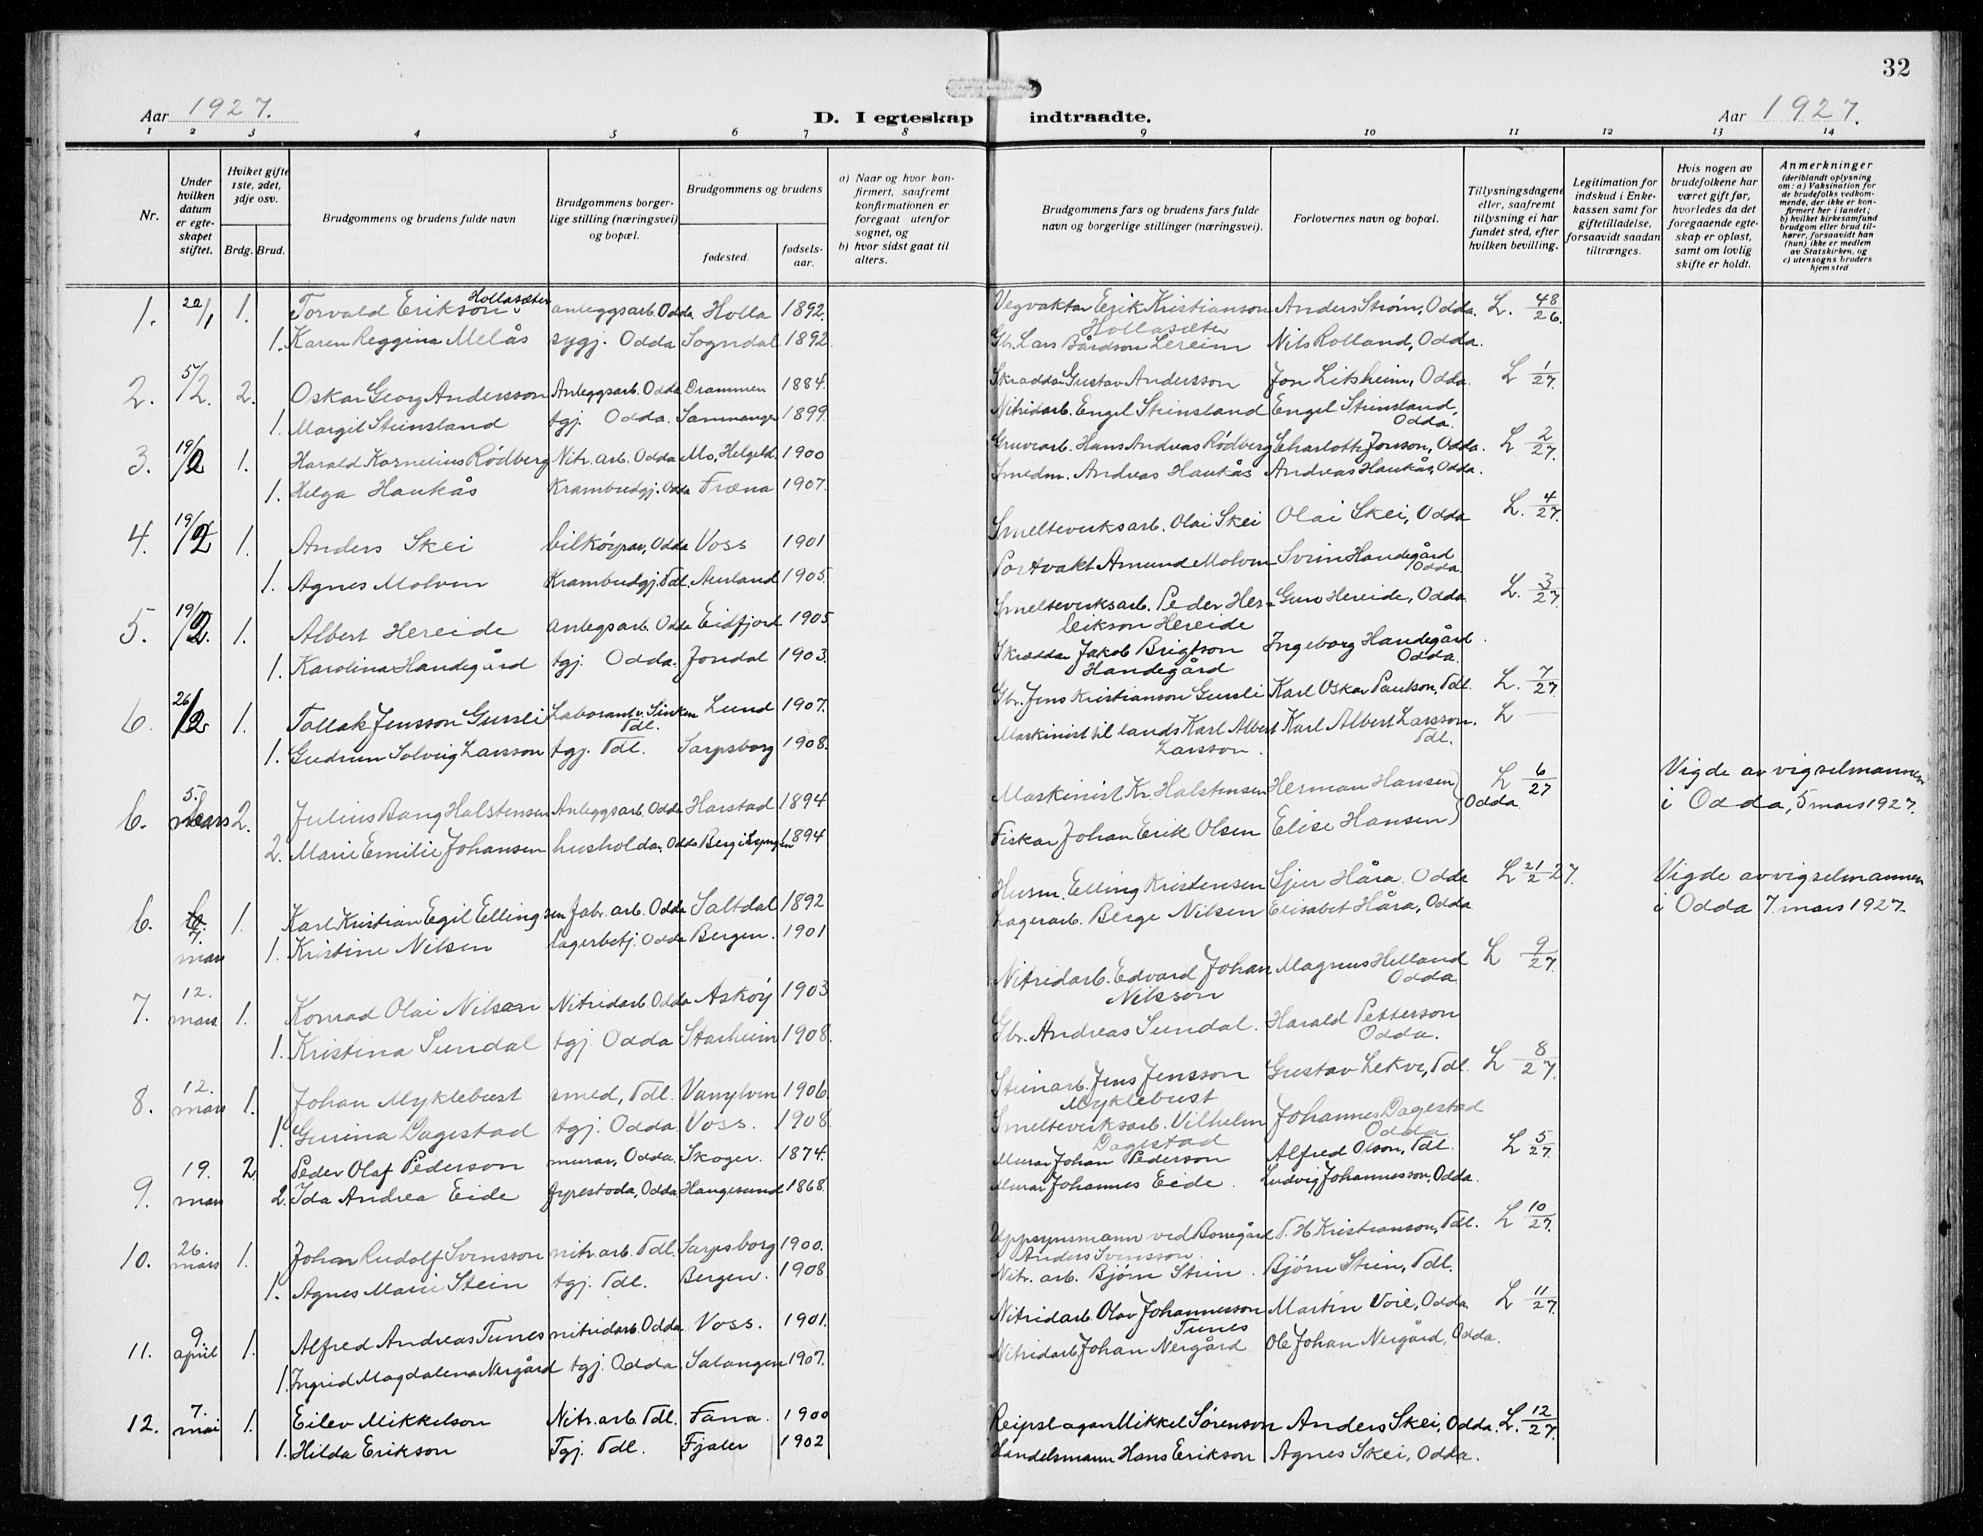 32
Aar 1927.
D. I egteskap indtraadte.
Aar 1927.
1 2 3 4 5 6 7 8 9 10 11 12 13 14
Nr.
Under hvilken datum er egte-skapet stiftet.
Hvilket gifte 1ste, 2det, 3dje osv.
Brdg. Brud.
Brudgommens og brudens fulde navn
Brudgommens borger-lige stilling (næringsvei) og bopæl.
Brudgommens og brudens
fødested.
fødsels-aar.
a) Naar og hvor kon-firmert, saafremt konfirmationen er foregaat utenfor sognet, og
b) hvor sidst gaat til alters.
Brudgommens fars og brudens fars fulde navn og borgerlige stillinger (næringsvei).
Forlovernes navn og bopæl.
Tillysningsdagene eller, saafremt tillysning ei har fundet sted, efter hvilken bevilling.
Legitimation for indskud i Enke-kassen samt for giftetilladelse, forsaavidt saadan tiltrænges.
Hvis nogen av brudefolkene har været gift før, hvorledes da det foregaaende egte-skap er opløst, samt om lovlig skifte er holdt.
Anmerkninger (deriblandt oplysning om: a) Vaksination for de brudefolks vedkom-mende, der ikke er kon-firmert her i landet; b) hvilket kirkesamfund brudgom eller brud til-hører, forsaavidt han (hun) ikke er medlem av Statskirken, og c) utensogns bruders hjemsted
1. 22/1 1. Torvald Erikson Hollasæter anleggsarb. Odda Holla 1892. Vegvaktar Erik Kristianson Hollasæter Anders Strøm, Odda. L. 48/26.
1. Karen Reggina Melås sygj. Odda Sogndal 1892. Gbr. Lars Bårdson Lereim Nils Rolland, Odda.
2. 5/2. 2. Oskar Georg Andersson Anleggsarb. Odda Drammen 1884. Skraddar Gustav Andersson Jon Litsheim, Odda. L 1/27.
1. Margit Steinsland tgj. Odda. Samnanger 1899. Nitridarb. Engel Steinsland Engel Steinsland, Odda.
3. 19/2 1. Harald Kornelius Rødberg Nitr. arb. Odda Mo, Helgeld. 1900 Gruvearb. Hans Andreas Rødberg Charlotte Jonson, Odda. L 2/27.
1. Helga Haukås Krambudgj. Odda Fræna 1907. Smedm. Andreas Haukås Andreas Haukås, Odda.
4. 19/2 1. Anders Skei bilkøyrar, Odda Voss 1901 Smelteverksarb. Olai Skei Olai Skei, Odda L. 4/27.
1. Agnes Molven Krambudgj. Tdl. Aurland 1905. Portvakt Amund Molven Svein Handegård Odda.
5. 19/2. 1. Albert Hereide anlegsarb. Odda Eidfjord 1905 Smelteverksarb. Peder Her-leikson Hereide Guro Hereide, Odda. L. 3/27.
1. Karolina Handegård tgj. Odda. Jondal 1903. Skrædda Jakob Brigtson Handegård Ingeborg Handegård. Odda.
6. 26/2 1. Tallak Jensson Gursli Laborant v. Sinken Tdl. Lund 1907. Gbr. Jens Kristianson Gursli Karl Oskar Paulson, Tdl. L. 7/27.
1. Gudrun Solveig Larsson tgj. Tdl. Sarpsborg 1908. Maskinist til lands Karl Albert Larsson. Karl Albert Larsson. Tdl. L —
6. 5. mars 2. Julius Bang Halstensen Anleggsarb. Odda Harstad 1894 Maskinist Kr. Halstensen Herman Hansen) Odda. L 6/27 Vigde av vigselmannen i Odda, 5 mars 1927.
2. Marie Emilie Johansen husholda, Odda Berg i Lyngen 1894 Fiskar Johan Erik Olsen Elise Hansen)
6. 7. mars 1. Karl Kristian Egil Ellingsen Fabr. arb. Odda Saltdal 1892 Husm. Elling Kristensen Sjur Håra. Odda L 21/2 27. Vigde av vigselmannen i Odda 7. mars 1927.
1. Kristine Nilsen lagerbetj. Odda Bergen. 1901 Lagerarb. Berge Nilsen Elisabet Håra, Odda
7. 12. mars. 1. Konrad Olai Nilsen Nitridarb Odda Askøy 1903 Nitridarb. Edvard Johan Nilsson Magnus Helland Odda L 9/27.
1. Kristina Sundal tgj. Odda Starheim 1908. Gbr. Andreas Sundal. Harald Petterson Odda.
8. 12. mars 1. Johan Myklebust smed, Tdl. Vanylven 1906. Steinarb. Jens Jensson Myklebust Gustav Lekve, Tdl. L 8/27.
1. Gurina Dagestad tgj. Odda Voss. 1908. Smelteverksarb. Vilhelm Dagestad Johannes Dagestad Odda
9. 19. mars 2. Peder Olaf Pederson murar, Odda. Skoger. 1874. Murar Johan Pederson Alfred Olson, Tdl. L 5/27.
2. Ida Andrea Eide fyrestoda, Odda Haugesund 1868. Murar Johannes Eide. Ludvig Johannesson, Odda.
10. 26. mars 1. Johan Rudolf Svensson nitr. arb. Tdl. Sarpsborg 1900. Uppsynsmann ved Borregård Anders Svensson. T. H. Kristianson, Tdl. L 10/27.
1. Agnes Marie Stein tgj. Tdl. Bergen. 1908. Nitr. arb. Bjørn Stein. Bjørn Stein, Tdl.
11. 9. april 1. Alfred Andreas Tunes nitridarb. Odda. Voss. 1901. Nitridarb. Olav Johannesson Tunes Martin Voie, Odda. L 11/27.
1. Ingrid Magdalena Nergård tgj. Odda. Salangen 1907. Nitridarb Johan Nergård Ole Johan Nergård, Odda.
12. 7. mai 1. Eilev Mikkelson Nitr. arb. Tdl. Fana. 1900 Reipslagar Mikkel Sørenson Anders Skei, Odda. L. 12/27.
1. Hilda Erikson Tgj. Tdl. Fjaler 1902 Handelsmann Hans Erikson Agnes Skei, Odda.